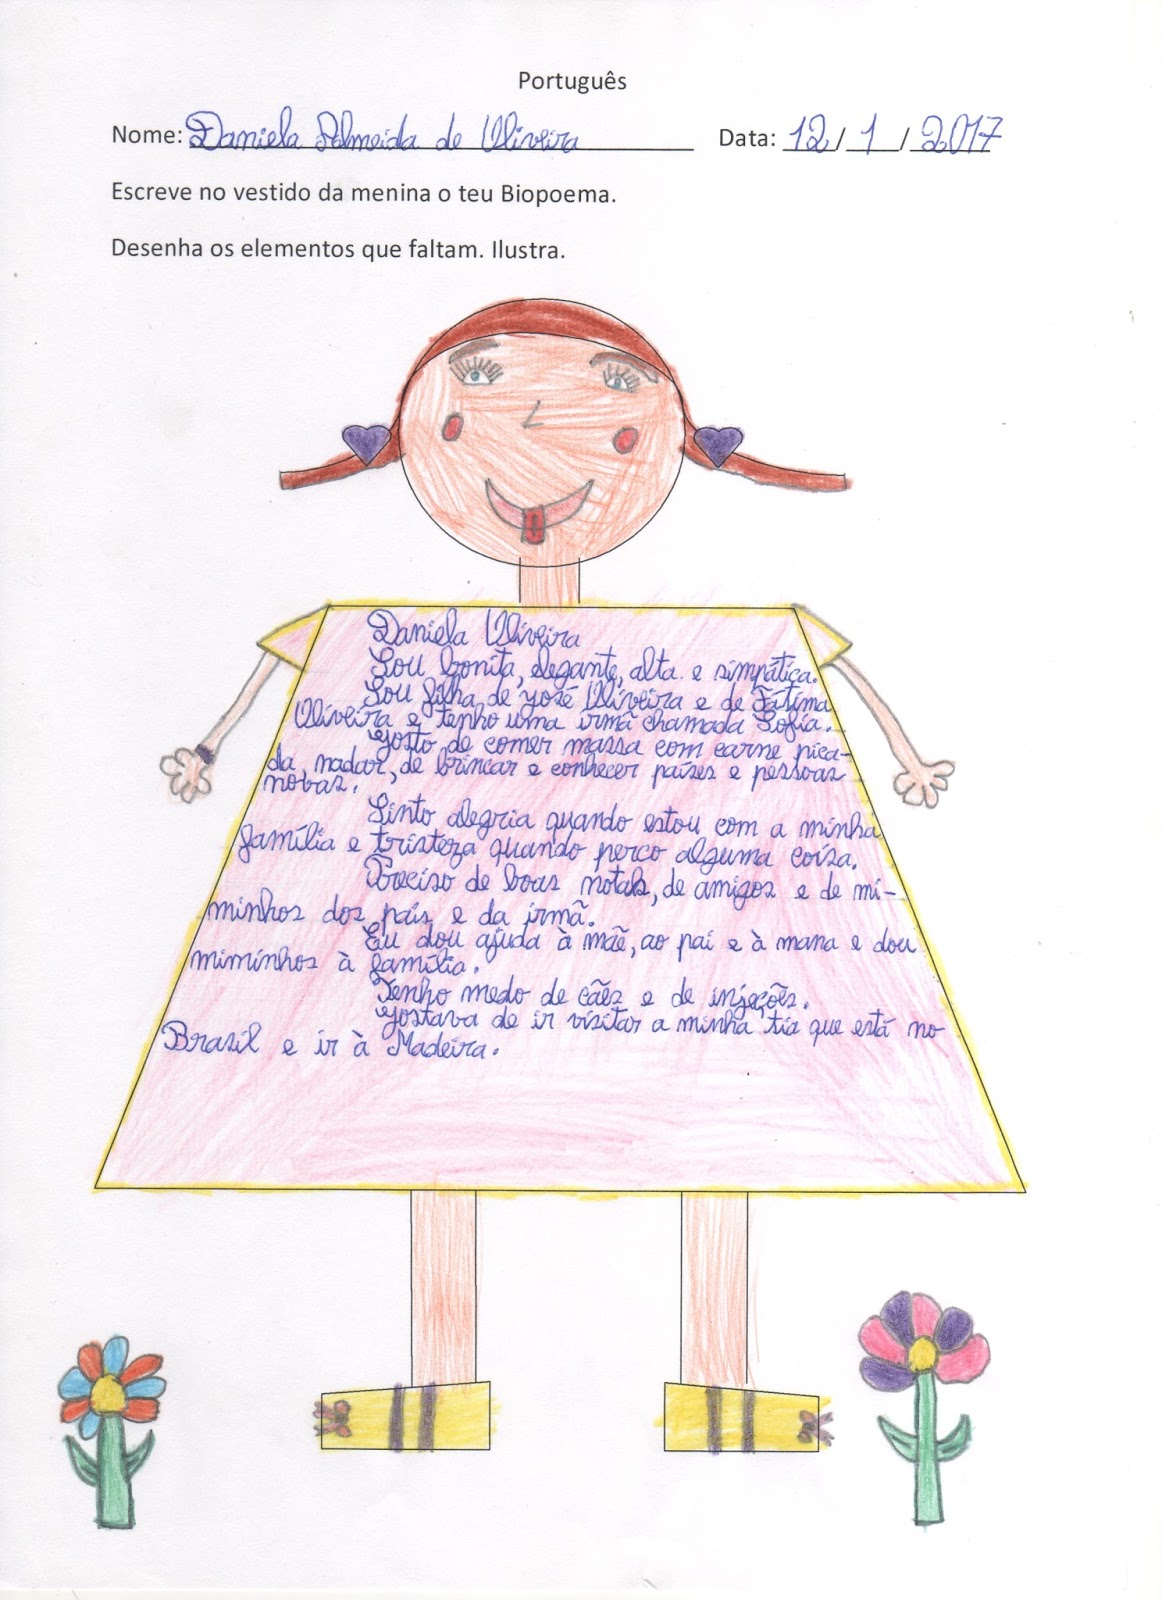 Português
Nome: Daniela Almeida de Oliveira Data: 12/1/2017
Escreve no vestido da menina o teu Biopoema.
Desenha os elementos que faltam. Ilustra.
Daniela Oliveira
Sou bonita, elegante, alta e simpática.
Sou filha de José Oliveira e de Fátima
Oliveira e tenho uma irmã chamada Sofia.
Gosto de comer massa com carne pica-
da nadar, de brincar e conhecer países e pessoas
novas.
Sinto alegria quando estou com a minha
família e tristeza quando perco alguma coisa.
Preciso de boas notas, de amigos e de mi-
minhos dos pais e da irmã.
Eu dou ajuda à mãe, ao pai e à mana e dou
miminhos à família.
Tenho medo de cães e de injeções.
Gostava de ir visitar a minha tia que está no
Brasil e ir à Madeira.